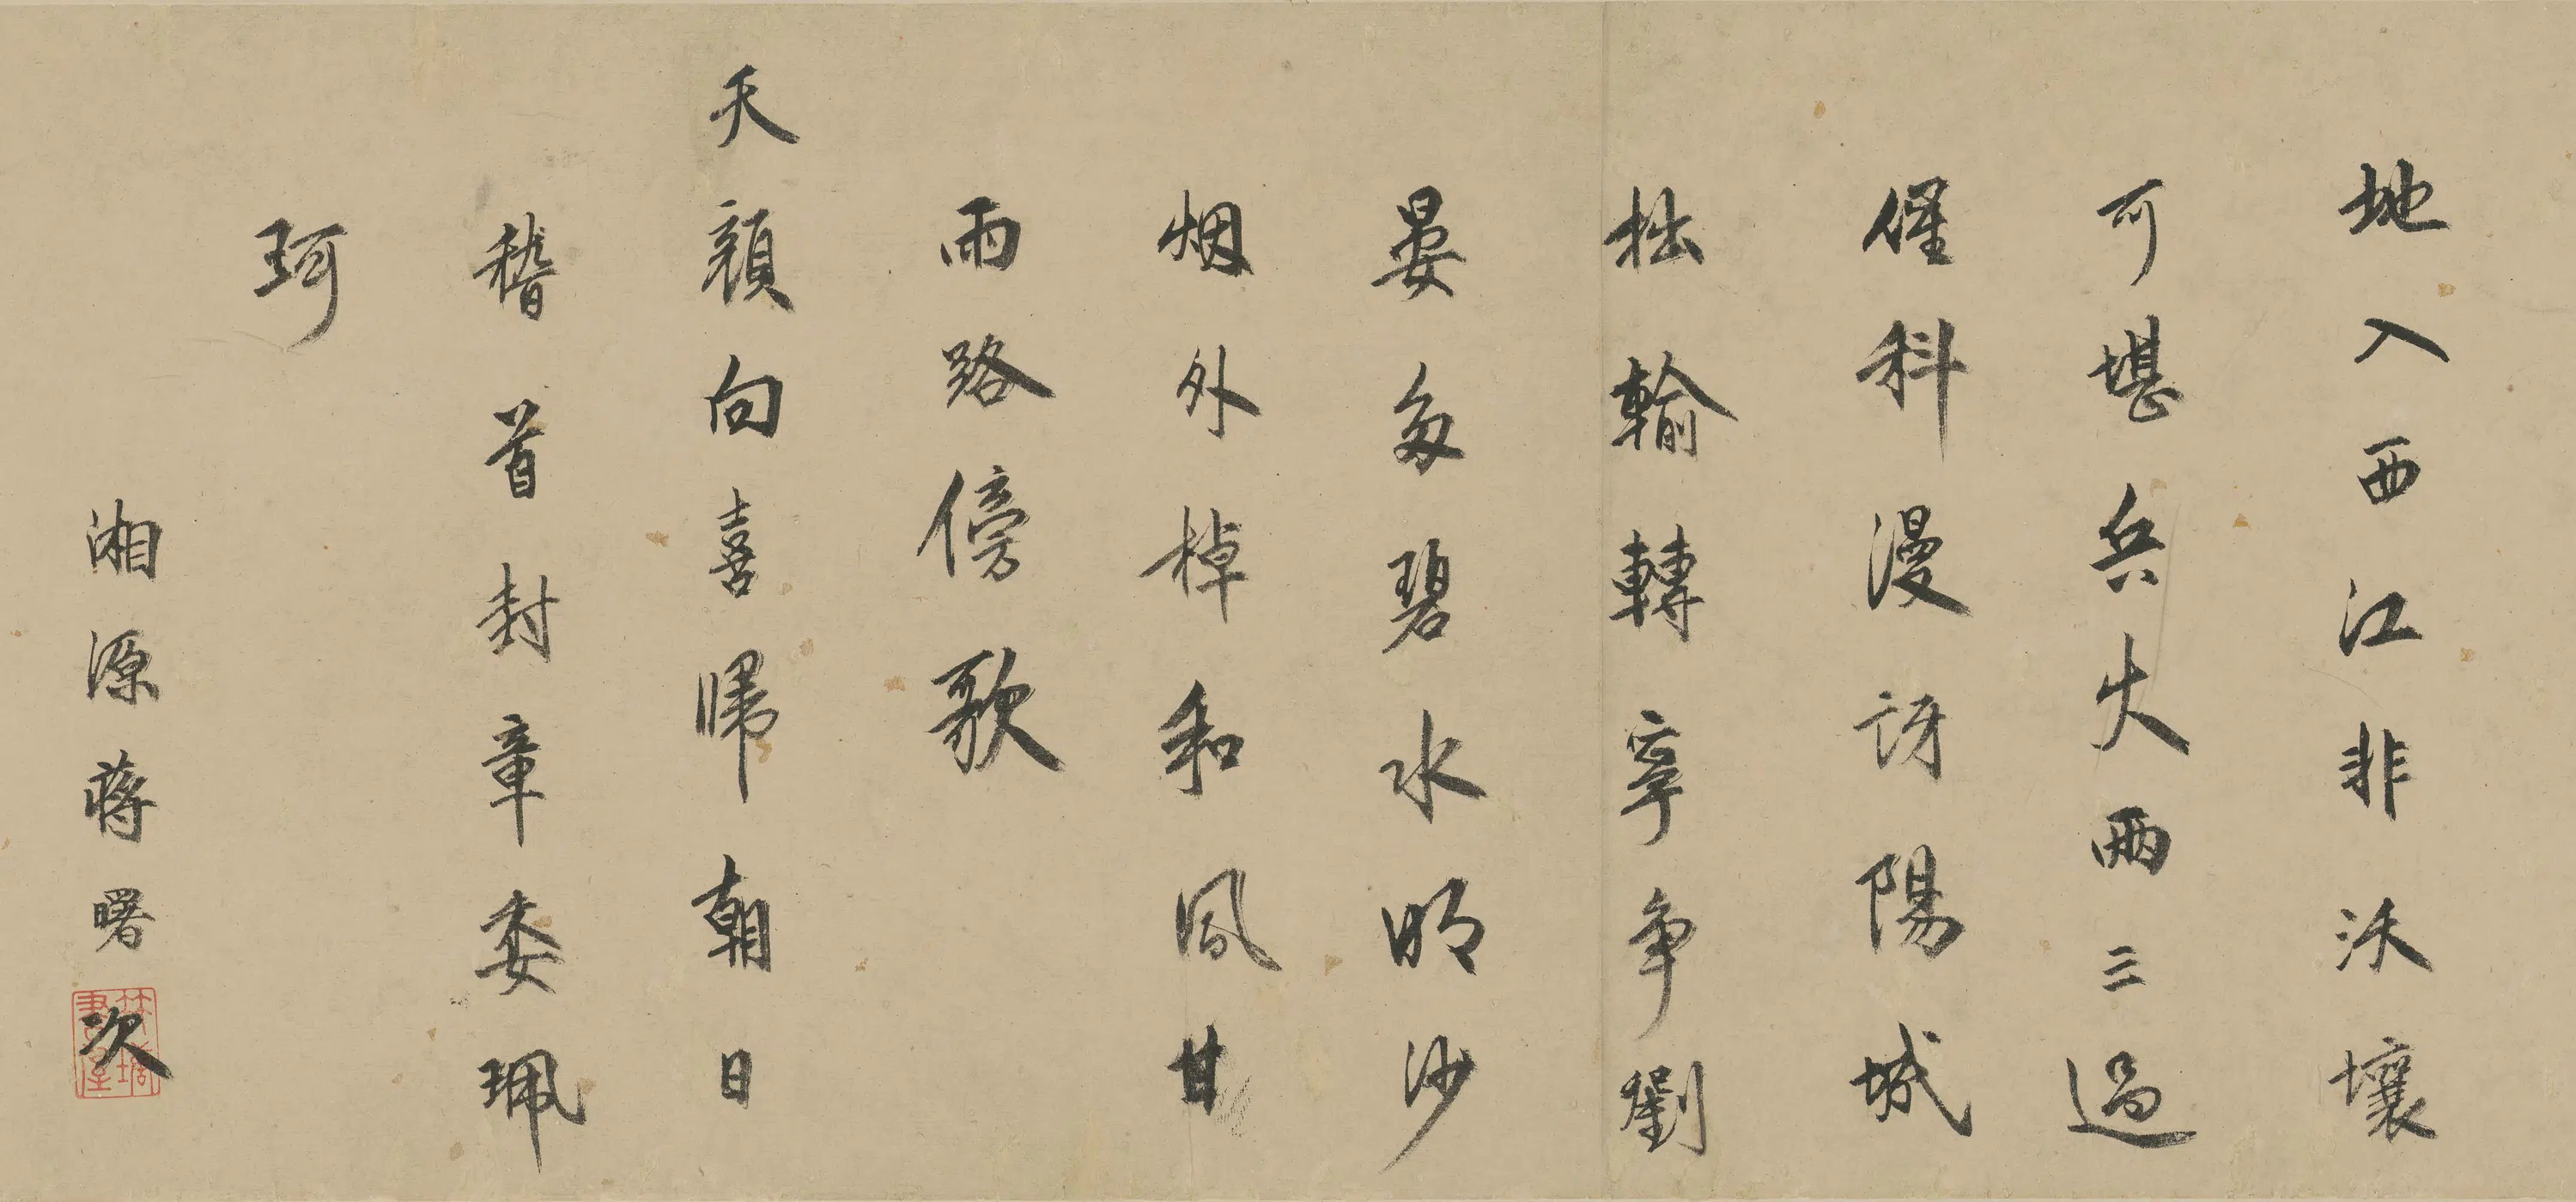 地入西江非沃壤
可堪兵火兩三過
催科漫訝陽城
拙輸轉寧爭劉
晏多碧水明沙
烟外棹和風甘
雨路傍歌
天顏向喜歸朝日
稽首封章委珮
珂
湘源蔣曙次